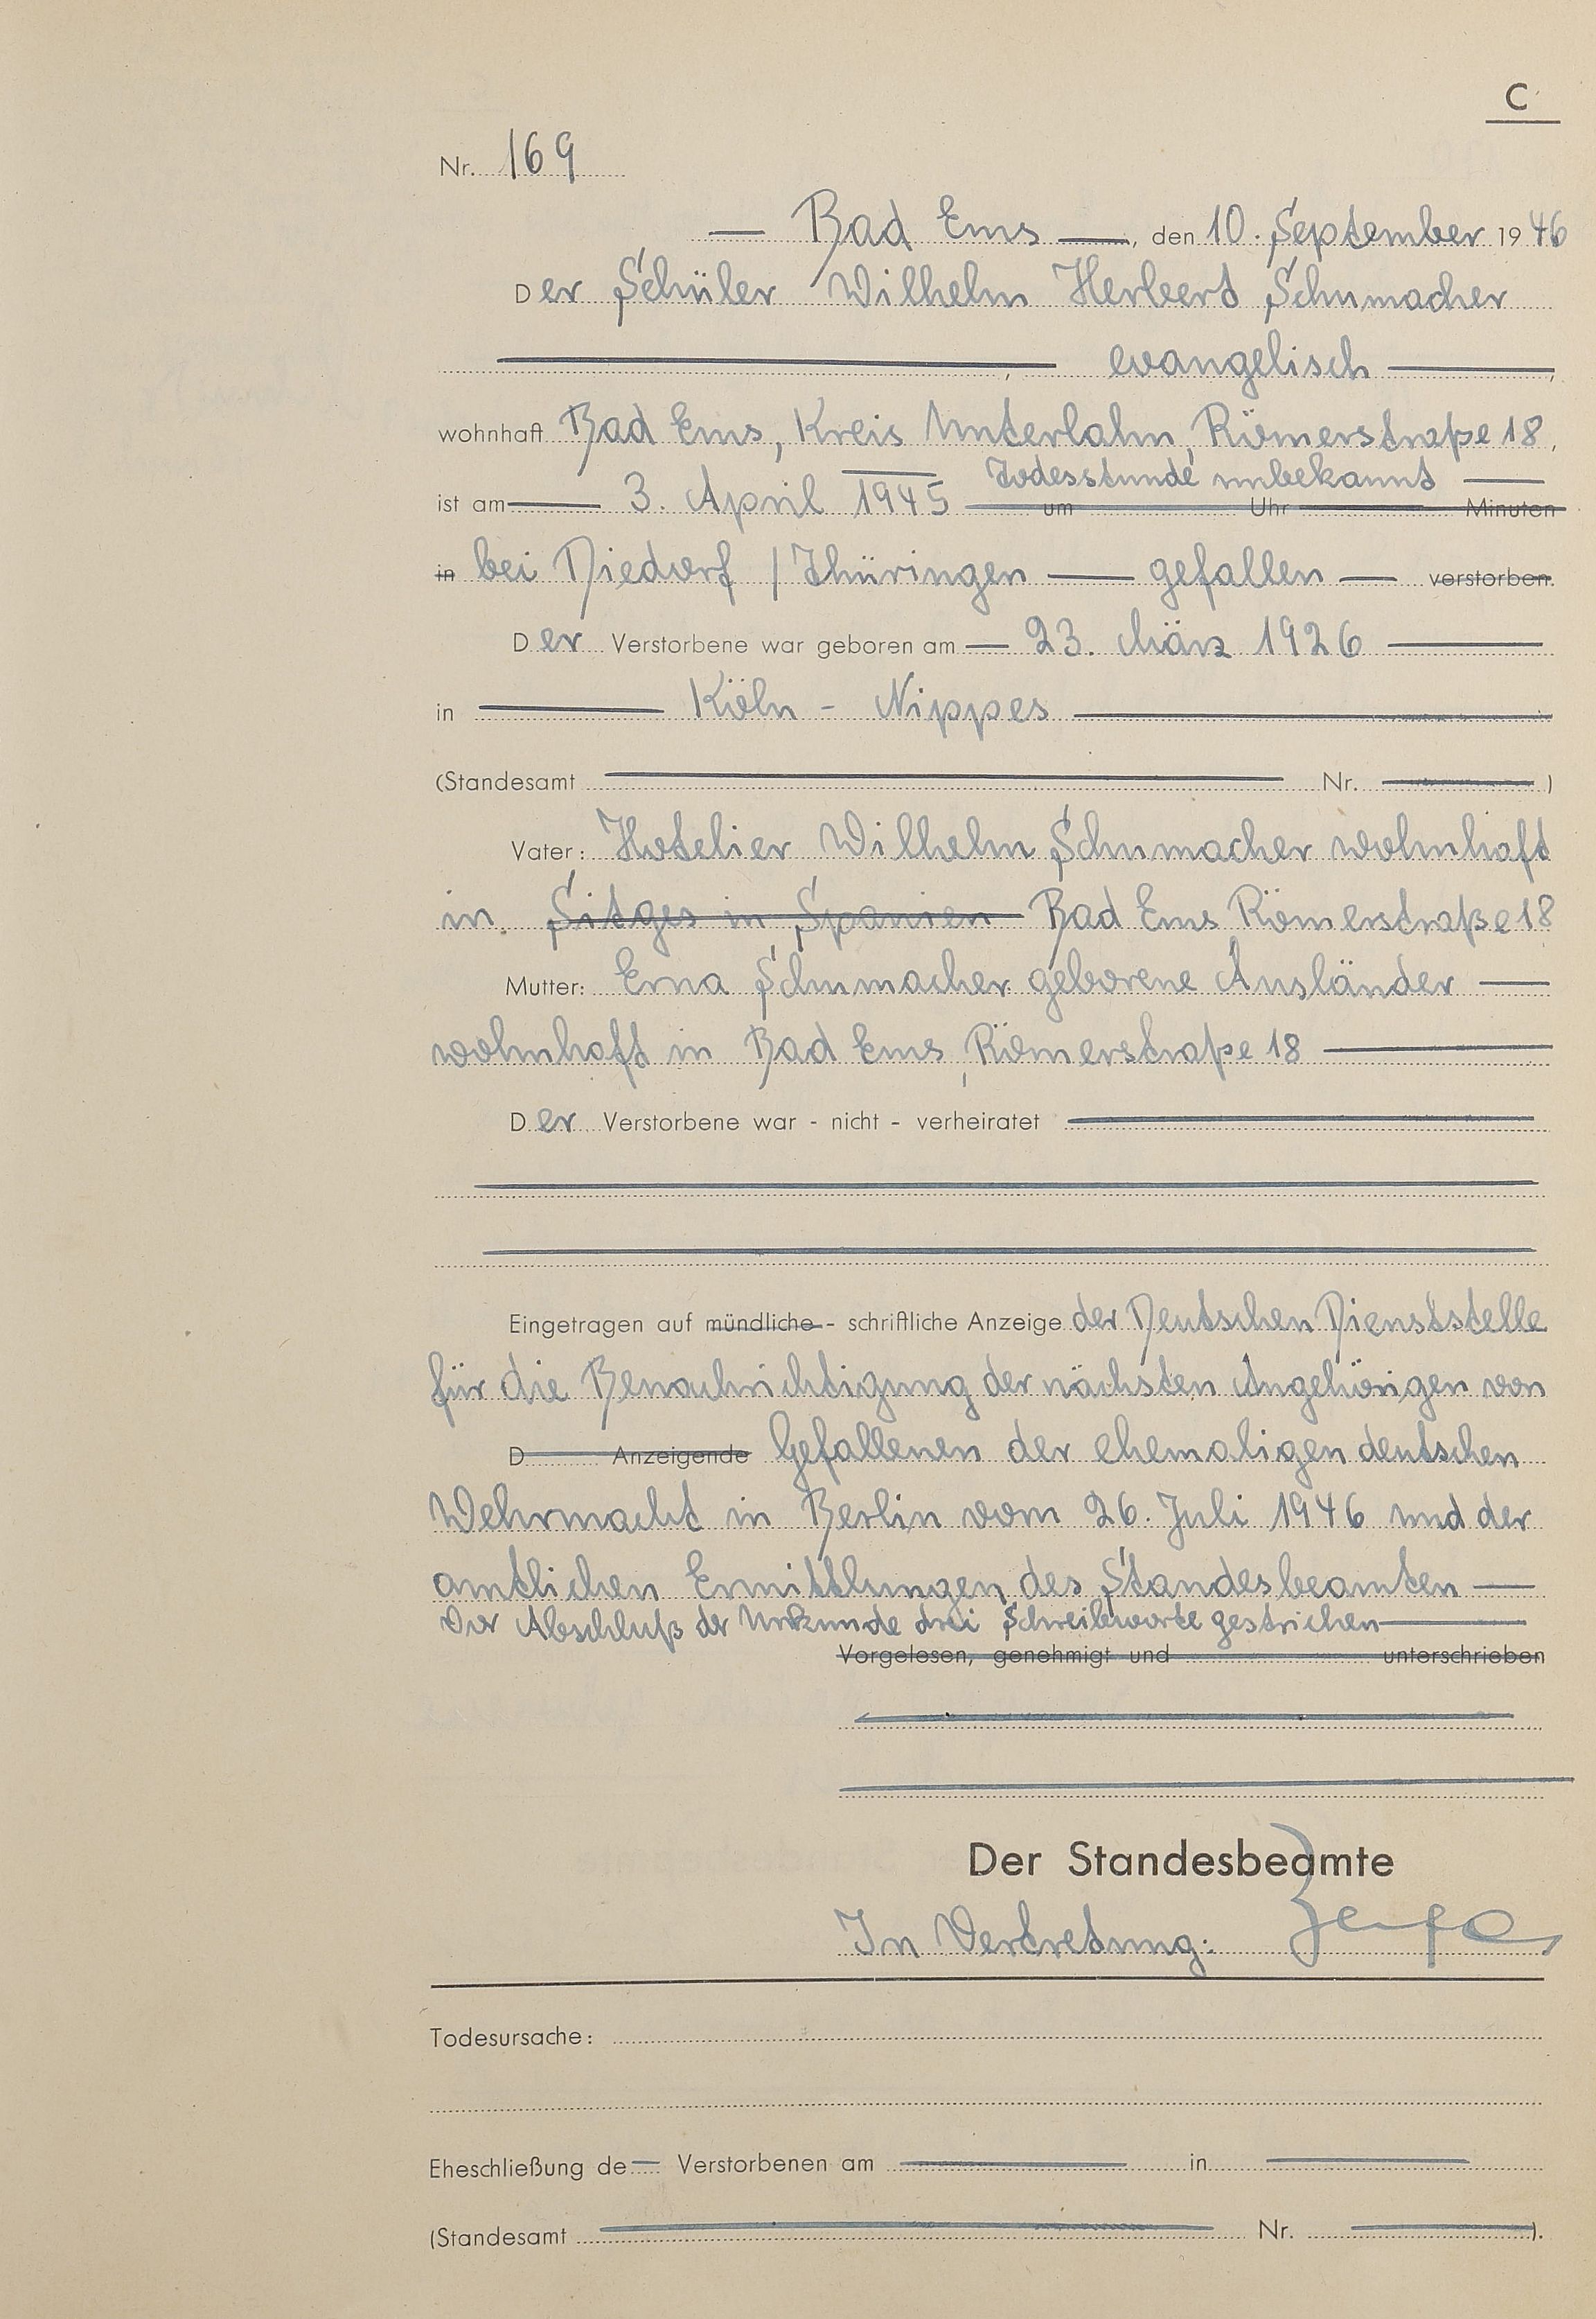 C
Nr. 169
Bad Ems, den 10. September 1946
Der Schüler Wilhelm Herbert Schumacher
, evangelisch ,
wohnhaft Bad Ems, Kreis Unterlahn, Römerstraße 18,
Todesstunde unbekannt
ist am 3. April 1945 um Uhr Minuten
in bei Diedorf / Thüringen gefallen verstorben.
Der Verstorbene war geboren am 23. März 1926
in Köln - Nippes
(Standesamt Nr. )
Vater: Hotelier Wilhelm Schumacher wohnhaft
in Sitges in Spanien Bad Ems Römerstraße 18
Mutter: Erna Schumacher geborene Ausländer
wohnhaft in Bad Ems, Römerstraße 18
Der Verstorbene war - nicht - verheiratet
Eingetragen auf mündliche - schriftliche Anzeige der Deutschen Dienststelle
für die Benachrichtigung der nächsten Angehörigen von
D Anzeigende Gefallenen der ehemaligen deutschen
Wehrmacht in Berlin vom 26. Juli 1946 und der
amtlichen Ermittlungen des Standesbeamten
Vor Abschluß der Urkunde drei Schreibworte gestrichen
Vorgelesen, genehmigt und unterschrieben
Der Standesbeamte
In Vertretung:
Todesursache:
Eheschließung de Verstorbenen am in
(Standesamt Nr. ).